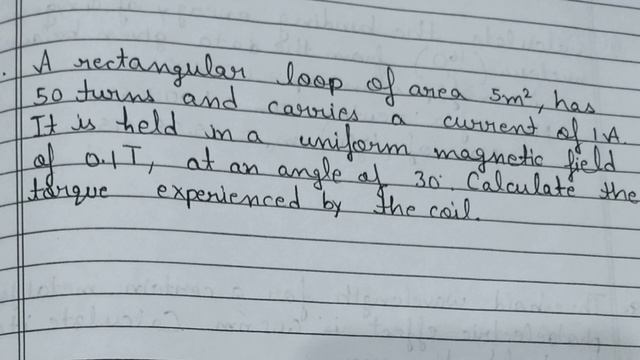 . A rectangular loop of area 5m², has
50 turns and carries a current of 1A.
It is held in a uniform magnetic field
of 0.1T, at an angle of 30°. Calculate the
torque experienced by the coil.